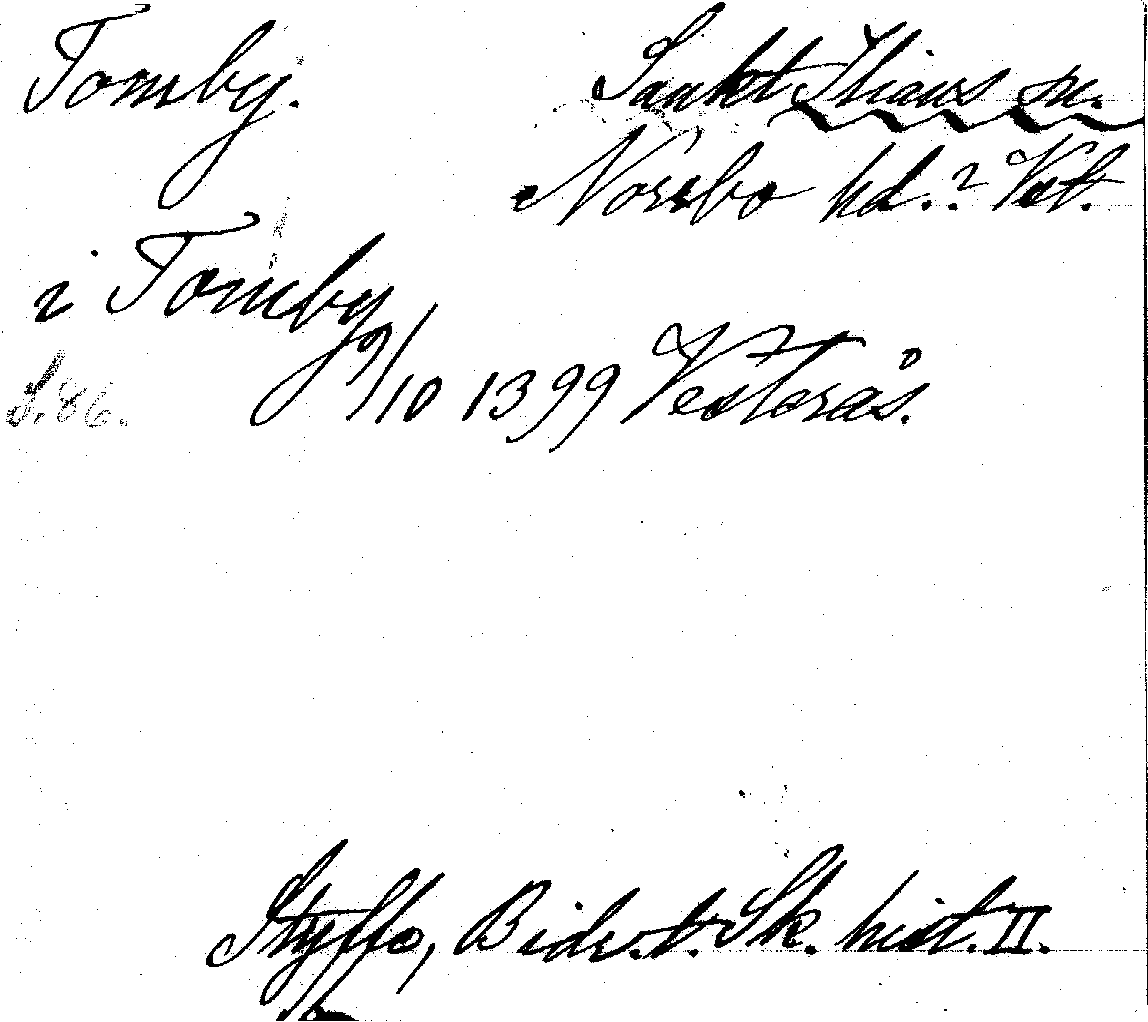 Tomby. Sankt Ilians sn.
Norrbo hd.? Vstm.
i Tomby
9/10 1399 Vesterås.
S. 86.
Styffe, Bidr. t. Sk. hist. II.